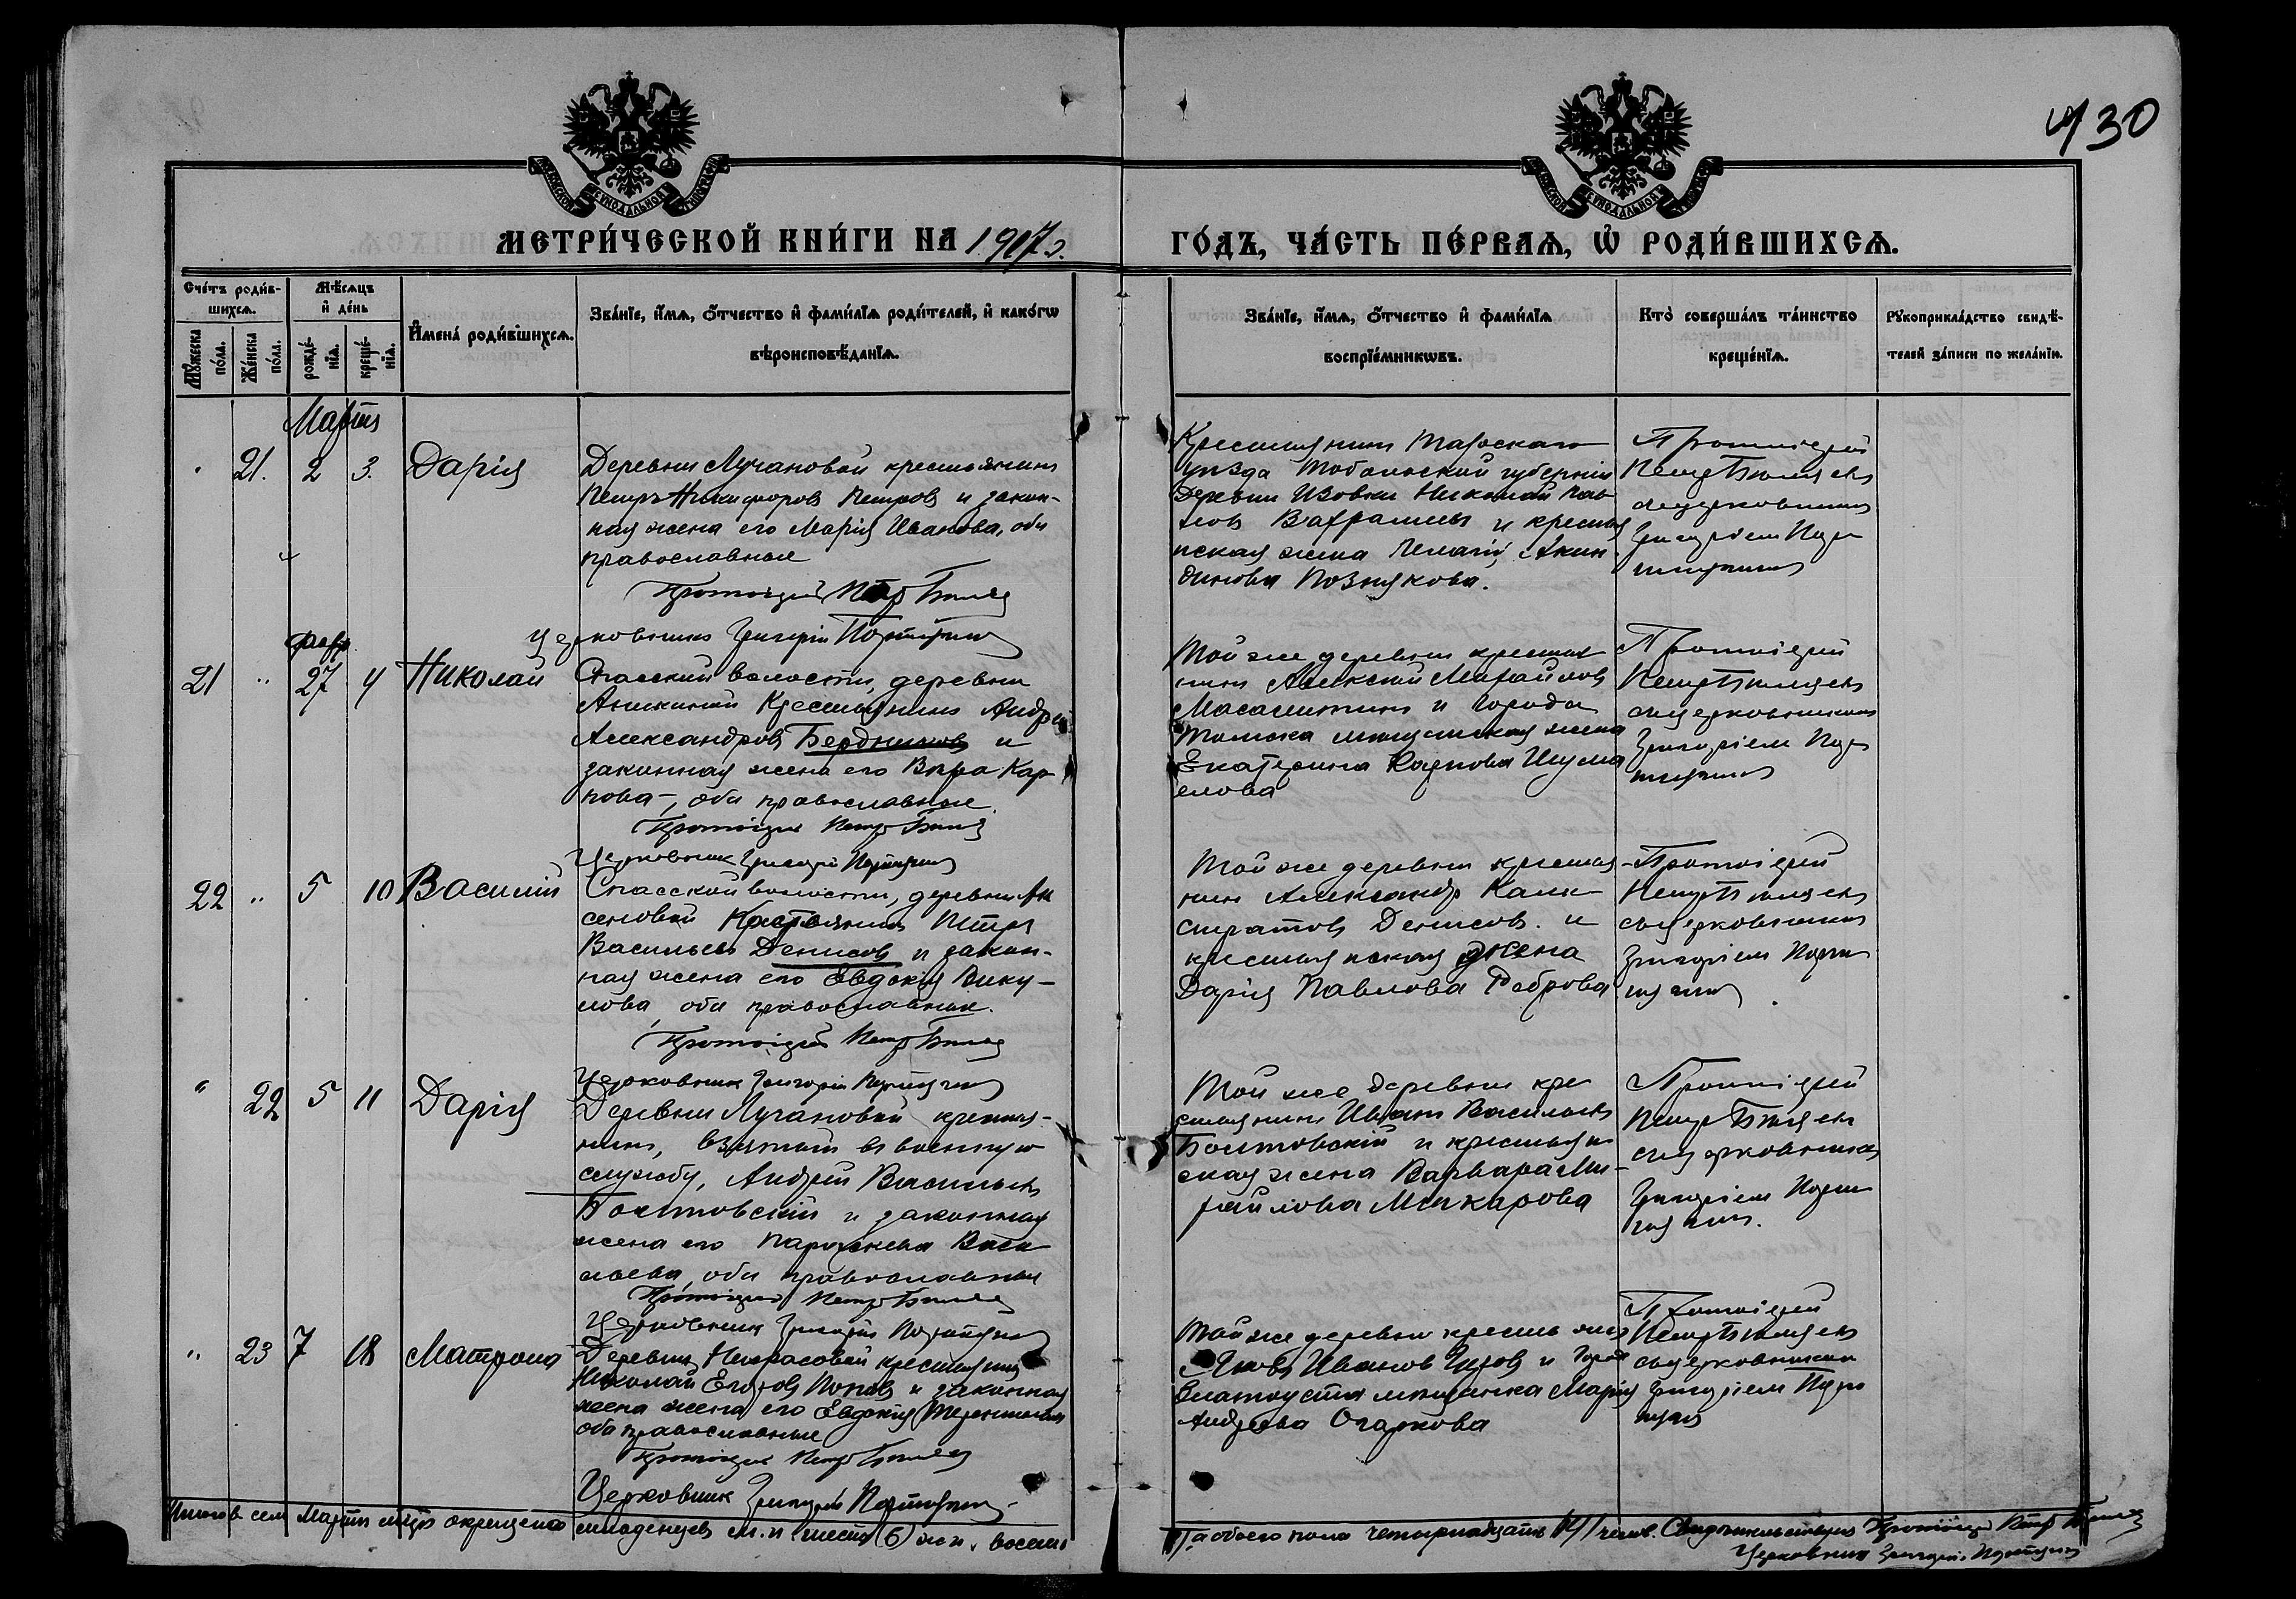 430
МЕТРИ́ЧЕСКОЙ КНИ́ГИ НА 1907 г.
ГО́ДЪ, ЧА́СТЬ ПЕ́РВАѦ, Ѡ҆ РОДИ́ВШИХСѦ.
Сче́тъ роди́в-
шихсѧ.
Мѣ́сѧцъ
и҆ де́нь
Мꙋ́жеска по́ла.
Же́нска по́ла.
рожде́-
нїѧ.
креще́-
нїѧ.
И҆мена̀ роди́вшихсѧ.
Зва́нїе, и҆́мѧ, ѻ҆́тчество и҆ фами́лїѧ роди́телей, и҆ како́гѡ
вѣроисповѣ́данїѧ.
Зва́нїе, и҆́мѧ, ѻ҆́тчество и҆ фами́лїѧ
воспрїе́мникѡвъ.
Кто̀ соверша́лъ та́инство
креще́нїѧ.
Рꙋкоприкла́дство свидѣ́-
телей за́писи по жела́нїю.
Марта
21. 2 3. Дарія
Деревни Лучановой крестьянинъ
Петръ Никифоровъ Петровъ и закон-
ная жена его Марія Иванова, оба
православные
Протоіерей Петръ
Церковникъ Григорій
Крестьянинъ Тарскаго
уѣзда Тобольской губерніи
деревни Николай Пав-
ловъ и крестья
нская жена Акин
динова Познякова.
Протоіерей
Петръ
съ церковникомъ
Григоріемъ
Февр.
21 " 27 4 Николай
Спасской волости, деревни
Аникиной Крестьянинъ Андрей
Александровъ Бердниковъ и
законная жена его Вѣра Кар
пова, оба православные.
Протоіерей Петръ
Церковникъ Григорій
Той же деревни крестья
нинъ Алексей Михайловъ
и города
Томска мѣщанская жена
Екатерина Карпова Шума
елова
Протоіерей
Петръ
съ церковникомъ
Григоріемъ
22 " 5 10 Василій
Спасской волости, деревни Ак
сеновой Крестьянинъ Петръ
Васильевъ Денисовъ и закон-
ная жена его Евдокія Вику-
лова, оба православные.
Протоіерей Петръ
Церковникъ Григорій
Той же деревни крестья-
нинъ Александръ Калис-
стратовъ Денисовъ. и
крестьянская жена
Дарія Павлова Реброва
Протоіерей
Петръ
съ церковникомъ
Григоріемъ
" 22 5 11 Дарія
Деревни Лучановой крестья-
нинъ, взятый въ военную
службу, Андрей Васильевъ
Болтовскій и законная
жена его Параскева Васи
льева, оба православные
Протоіерей Петръ
Церковникъ Григорій
Той же деревни кре
стьянинъ Иванъ Васильевъ
Болтовскій и крестьян
ская жена Варвара Ми-
хайлова Макарова
Протоіерей
Петръ
съ церковникомъ
Григоріемъ
" 23 7 18 Матрона
Деревни Некрасовой крестьянинъ
Николай Егоровъ Поповъ и законная
жена жена его Евдокія Терентьева
оба православные
Протоіерей Петръ
Церковникъ Григорій
Той же деревни крестьянинъ
Яковъ Ивановъ и Города
Златоуста мѣщанка Марія
Андреева Огаркова
Протоіерей
Петръ
съ церковникомъ
Григоріемъ
Итого въ сем Мартѣ мѣсяцѣ окрещено младенцевъ м. п шесть (6) ж п. восемь
а обоего пола четырнадцать (14) челов. Протоіерей Петръ
Церковникъ Григорій